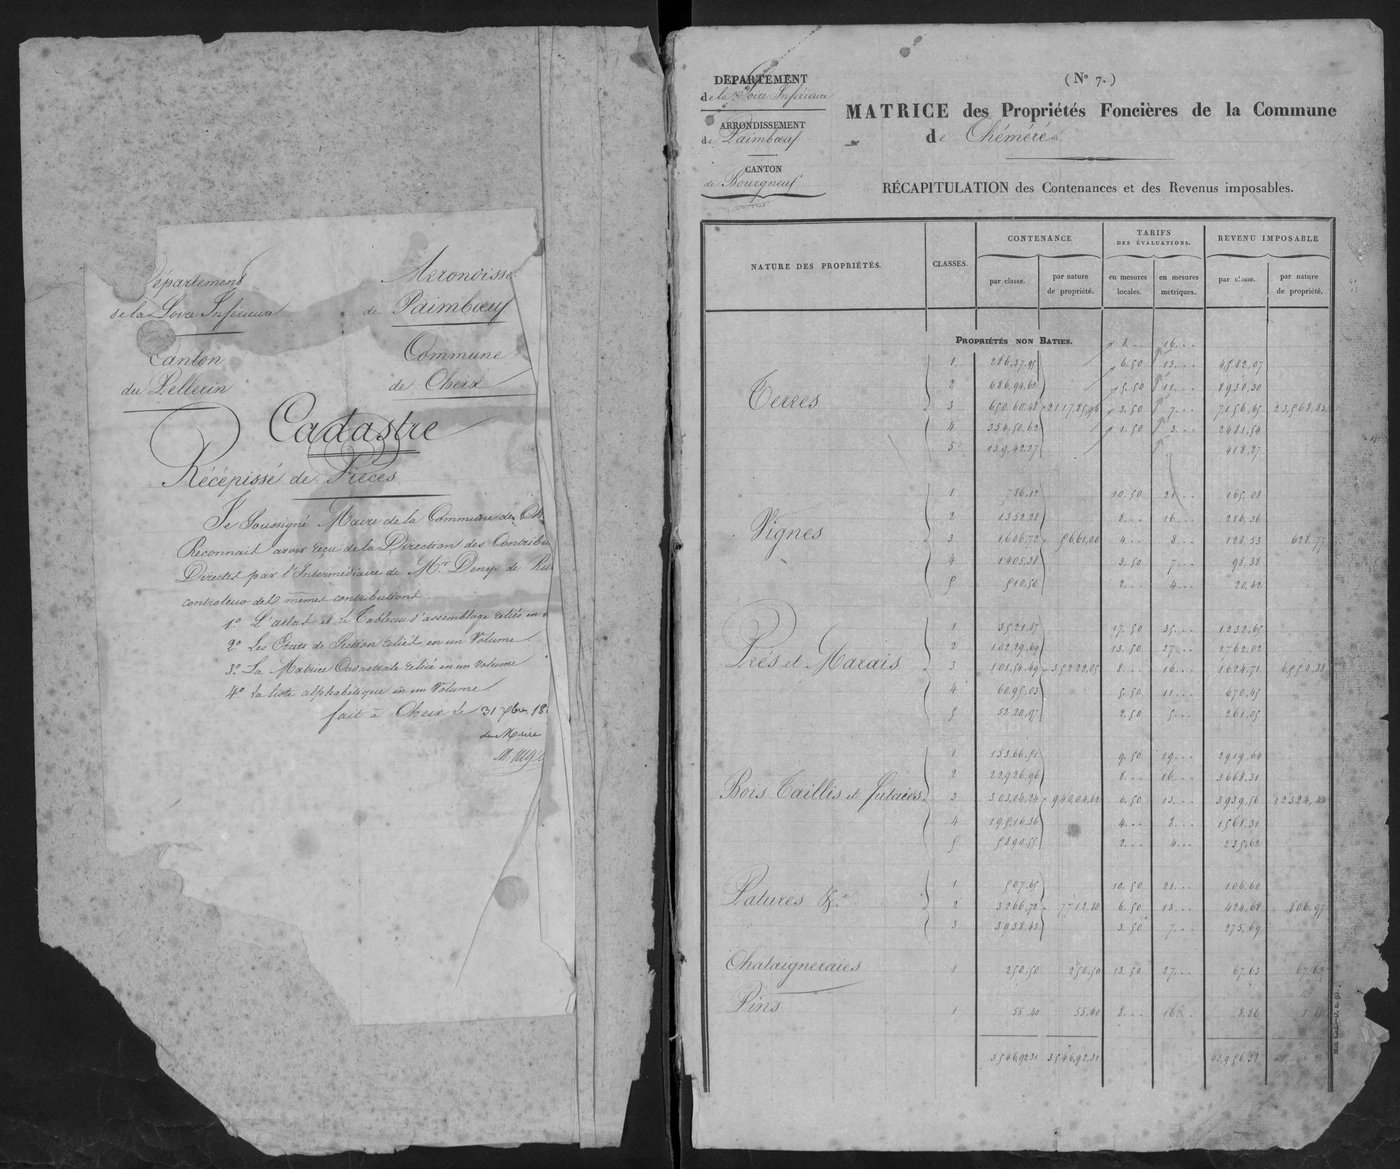 Département
de la Loire Inférieure
Canton
du Pellerin
Arrondisse
de Paimbœuf
Commune
de Cheix
Cadastre
Récépissé de Pièces
Je Soussigné Maire de la Commune de Ch
Reconnait avoir reçu de la Direction des Contribu
Directes par l'Intermédiaire de Mr
controleur des mêmes contributions
1º L'atlas et le Tableau d'assemblage reliés en
2º Les Etats de Section relié en un Volume
3º La Matrice Cadastrale reliée en un volume
4º La liste alphabétique en un Volume
fait à Cheix le 31 xbre 18
Le Maire
DÉPARTEMENT
de la Loire Inférieure
ARRONDISSEMENT
de Paimbœuf
CANTON
de Bourgneuf
(Nº 7.)
MATRICE des Propriétés Foncières de la Commune
de Chéméré
RÉCAPITULATION des Contenances et des Revenus imposables.
NATURE DES PROPRIÉTÉS. CLASSES. CONTENANCE TARIFS DES ÉVALUATIONS. REVENU IMPOSABLE
par classe. par nature de propriété. en mesures locales. en mesures métriques. par classe. par nature de propriété.
PROPRIÉTÉS NON BATIES. 8... 16...
1 286,37,95 6.50 13... 4582,07
2 686,94,62 5.50 11... 8930,30
Terres 3 650,60,48 2117,85,94 3.50 7... 7156,65 23,568,83
4 354,50,62 1.50 3... 2481,54
5 139,42,27 418,27
1 786,12 10.50 21... 165,08
2 1352,28 8... 16... 216,36
Vignes 3 1606,72 5661,00 4... 8... 128,53 628,77
4 1405,38 3.50 7... 98,38
5 510,50 2... 4... 20,42
1 35,21,87 17.50 35... 1232,65
2 102,29,69 13.50 27... 2762,02
Prés et Marais 3 101,54,49 352,22,05 8... 16... 1624,71 6550,88
4 60,95,03 5.50 11... 670,45
5 52,20,97 2.50 5... 261,05
1 153,66,51 9.50 19... 2919,64
2 229,26,96 8... 16... 3668,31
Bois Taillis et Futaies 3 303,04,24 940,04,62 6.50 13... 3939,56 12324,44
4 195,16,36 4... 8... 1561,31
5 58,90,55 2... 4... 235,62
1 507,65 10.50 21... 106,60
Patures &a 2 3266,72 7712,80 6.50 13... 424,68 806,97
3 3938,43 3.50 7... 275,69
Chataigneraies 1 250,50 250,50 13.50 27... 67,63 67,63
Pins 1 55,40 55,40 8... 16... 8,86
3546,92,31 3546,92,31